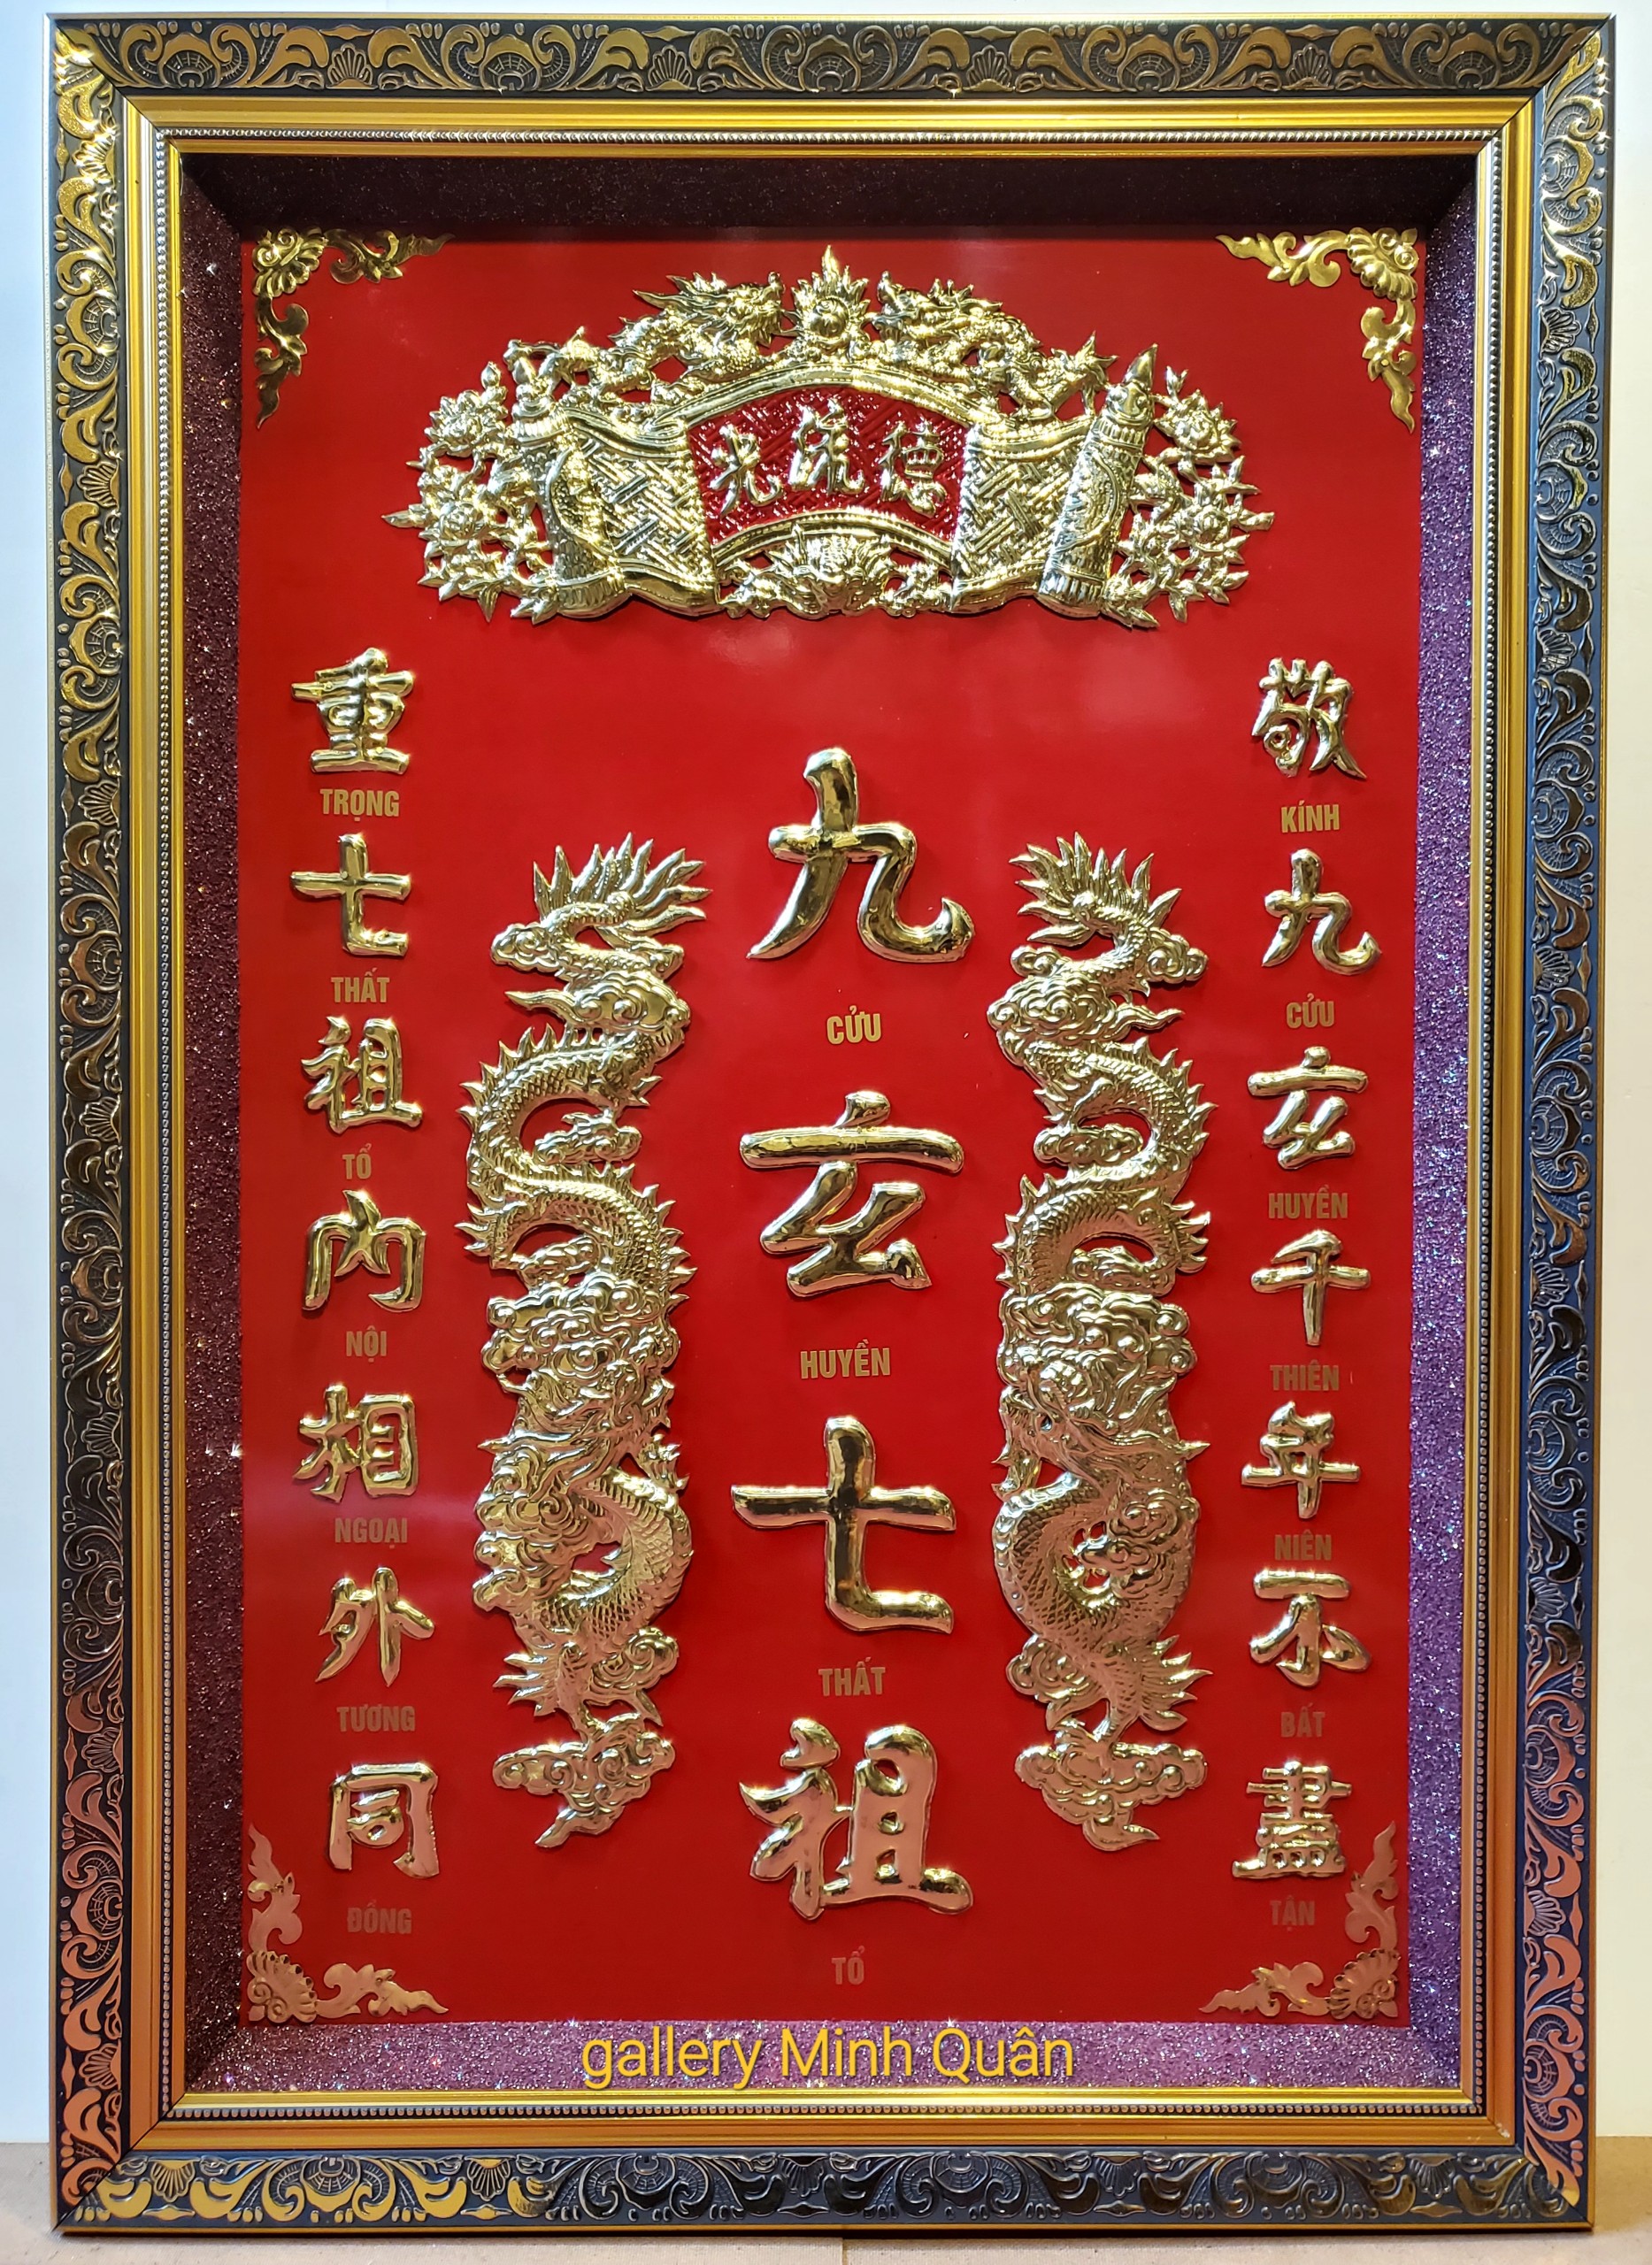 光流德
敬
KÍNH
九
CỬU
玄
HUYỀN
千
THIÊN
年
NIÊN
不
BẤT
盡
TẬN
九
CỬU
玄
HUYỀN
七
THẤT
祖
TỔ
重
TRỌNG
七
THẤT
祖
TỔ
內
NỘI
相
NGOẠI
外
TƯƠNG
同
ĐỒNG
gallery Minh Quân